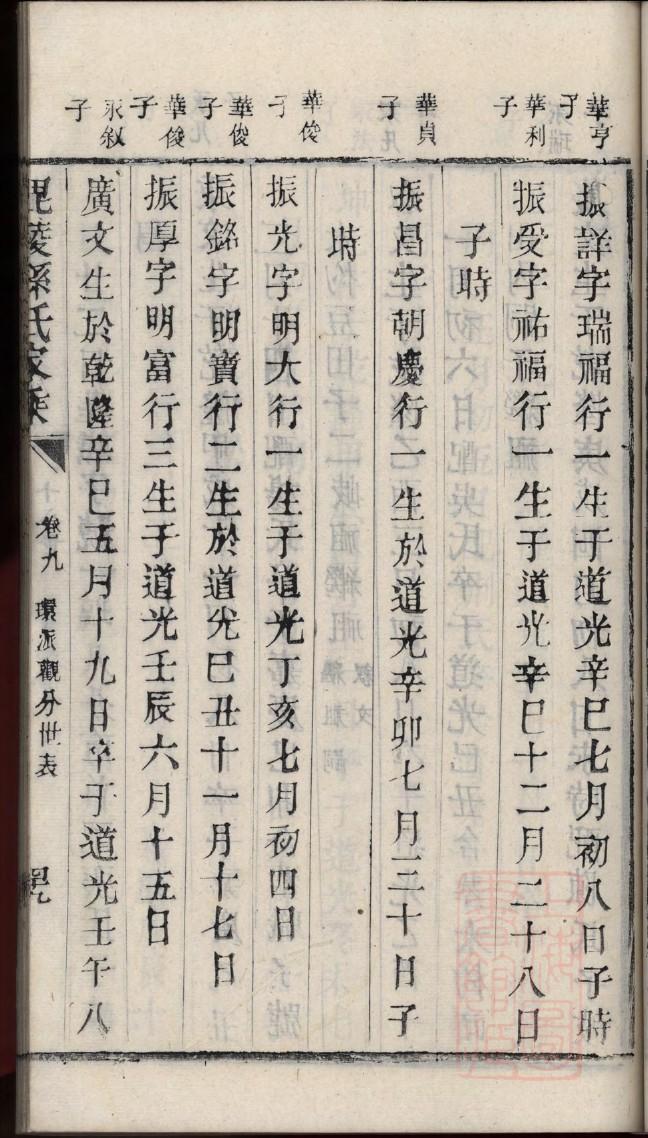 華亨子
振詳字瑞福行一生于道光辛巳七月初八日子時
華利子
振受字祐福行一生于道光辛巳十二月二十八日
子時
華貞子
振昌字朝慶行一生於道光辛卯七月二十日子
時
華俊子
振光字明大行一生于道光丁亥七月初四日
華俊子
振銘字明寶行二生於道光巳丑十一月十七日
華俊子
振厚字明富行三生于道光壬辰六月十五日
永敘子
廣文生於乾隆辛巳五月十九日卒于道光壬午八
毘陵孫氏家乗
卷九 環派觀分世表